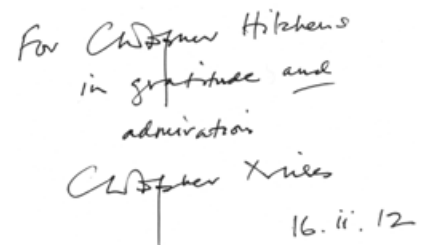 For Christopher Hitchens
in gratitude and
admiration
Christopher
16.ii.12